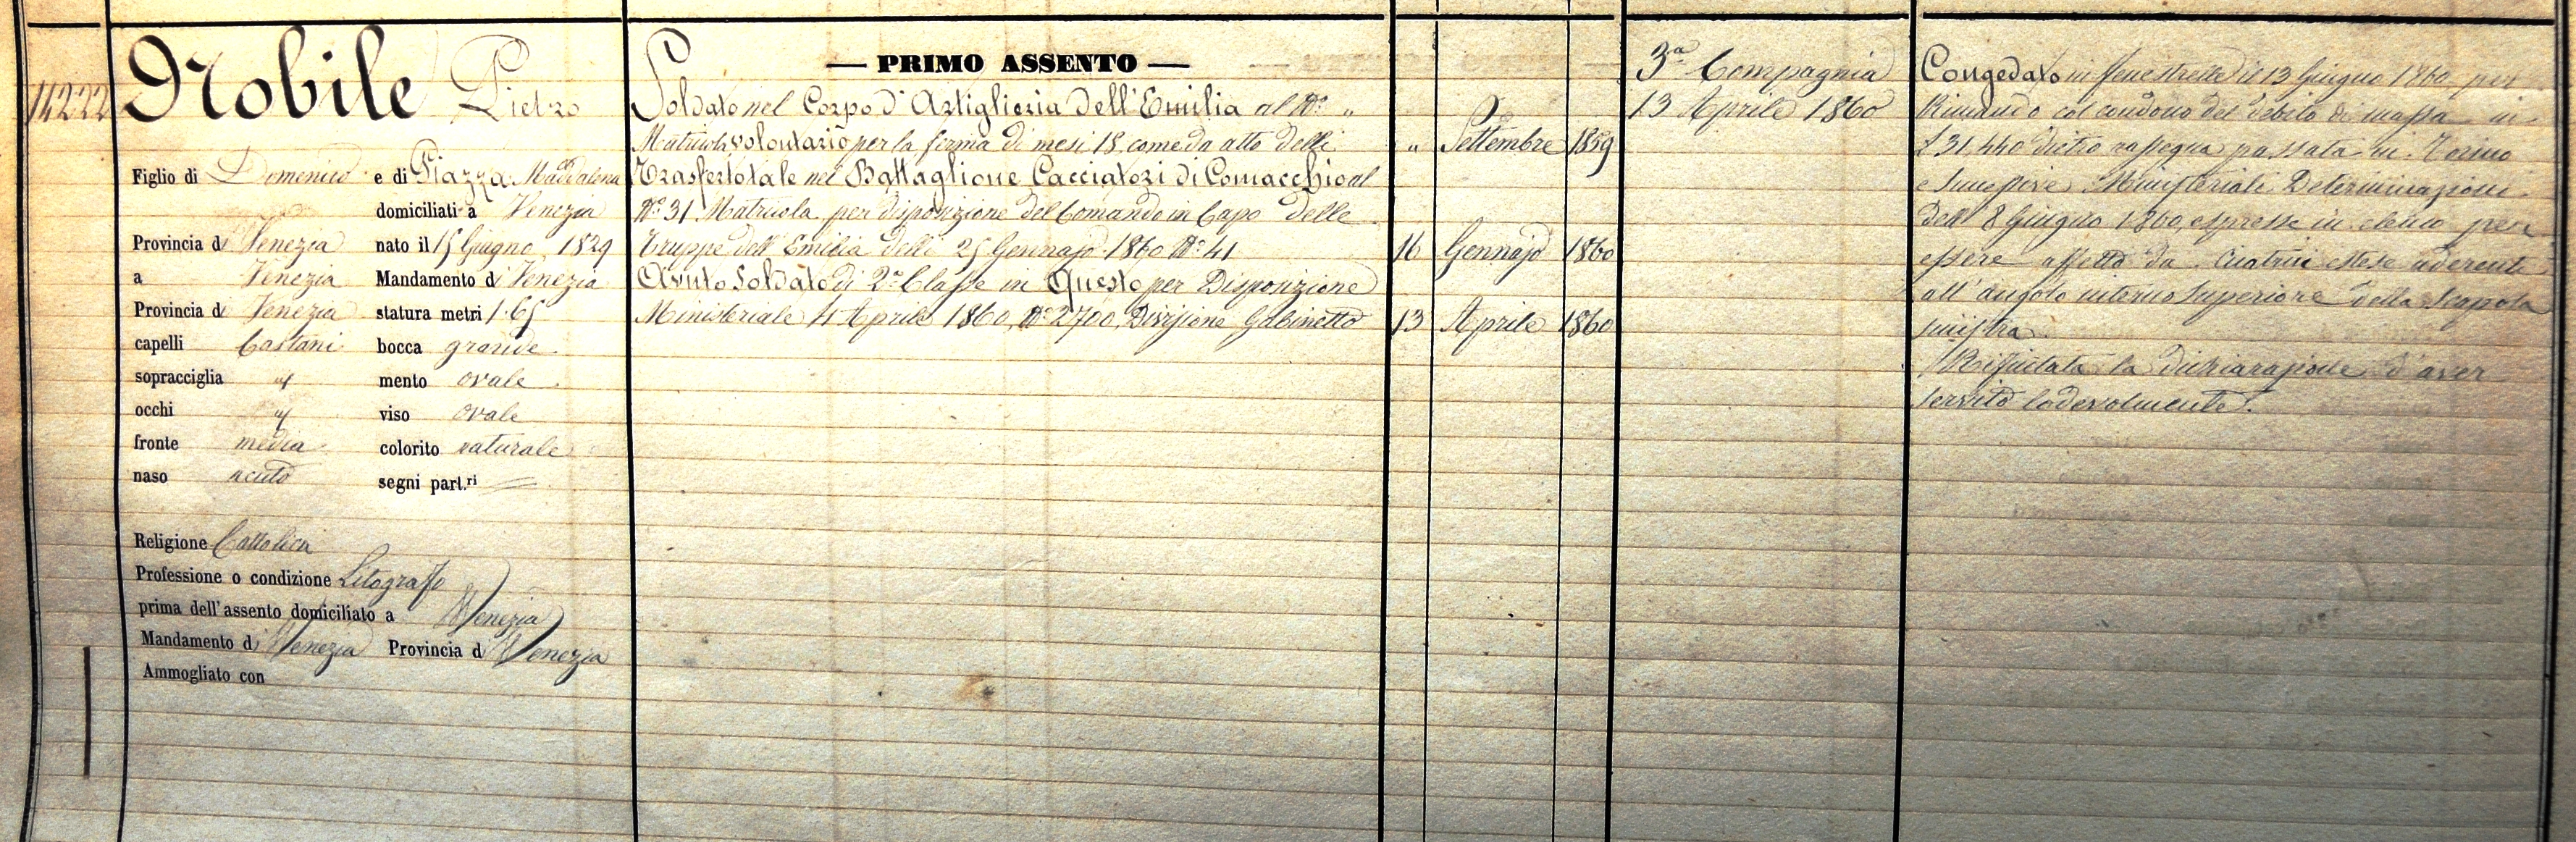 14222
Nobile Pietro
Figlio di Domenico e di Piazza Maddalena
domiciliati a Venezia
Provincia di Venezia nato il 15 Giugno 1829
a Venezia Mandamento di Venezia
Provincia di Venezia statura metri 1.65
capelli Castani bocca grande
sopracciglia " mento ovale
occhi " viso ovale
fronte media colorito naturale
naso acuto segni part.ri
Religione Cattolica
Professione o condizione Litografo
prima dell'assento domiciliato a Venezia
Mandamento di Venezia Provincia di Venezia
Ammogliato con
— PRIMO ASSENTO —
Soldato nel Corpo d'Artiglieria dell'Emilia al N° "
Matricola volontario per la ferma di mesi 18 come da atto delli " Settembre 1859
Trasferto tale nel Battaglione Cacciatori di Comacchio al
N° 31 Matricola per disposizione del Comando in Capo delle
Truppe dell'Emilia delli 25 Gennajo 1860 N° 41 16 Gennajo 1860
Avuto Soldato di 2a Classe in Questo per Disposizione
Ministeriale 4 Aprile 1860, N° 2700, Divisione Gabinetto 13 Aprile 1860
3a Compagnia
13 Aprile 1860
Congedato in Fenestrelle il 13 Giugno 1860 per
Rimando col condono del debito di massa in
£ 31,440 dietro rassegna passata in Torino
e Ministeriali Determinazioni
dell' 8 Giugno 1860, espresse in elenco per
essere affetto da Cicatrice estese aderente
all'angolo interno Superiore della Scapola
sinistra
Rifiutata la dichiarazione d'aver
servito lodevolmente.